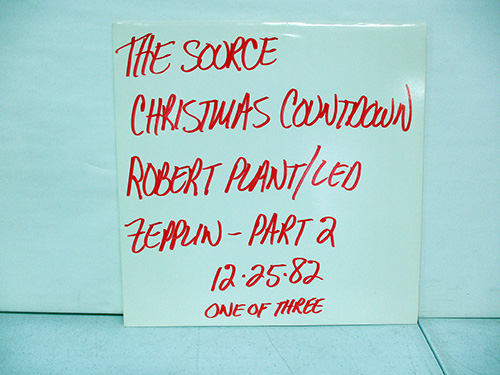 THE SOURCE
CHRISTMAS COUNTDOWN
ROBERT PLANT/LED
ZEPPLIN - PART 2
12.25.82
ONE OF THREE